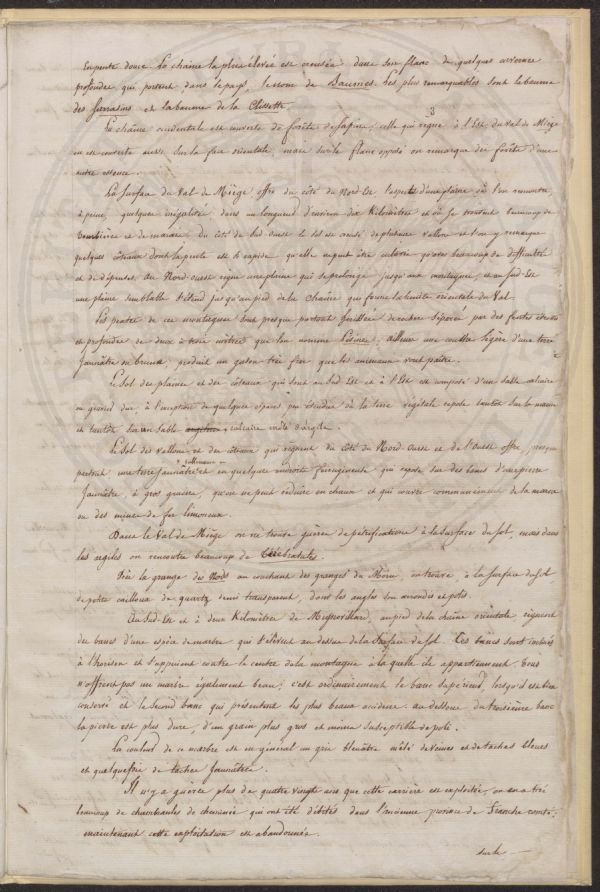 en pente douce. La chaîne la plus élevée est creusée dans son flanc de quelques cavernes
profondes qui portent dans le pays le nom de Baumes. Les plus remarquables sont la baume
des Sarrasins et la baume de la Clisette.
La chaîne occidentale est couverte de forêts de sapins; celle qui règne à l'Est du Val de Miège
en est couverte aussi sur la face orientale mais sur le flanc opposé on remarque des forêts d'une
autre essence.
La surface du Val de Miège offre du côté du Nord-Est l'aspect d'une plaine où l'on rencontre,
à peine, quelques inégalités, dans une longueur d'environ dix Kilomètres et où se trouvent beaucoup de
tourbières et de marais. Du côté du Sud-Ouest le sol est creusé de plusieurs vallons et l'on y remarque
quelques côteaux dont la pente est si rapide qu'elle ne peut être cultivée qu'avec beaucoup de difficultés
et de dépenses. Au Nord-Ouest règne une plaine qui se prolonge jusqu'aux montagnes, et au Sud-Est
une plaine semblable s'étend jusqu'au pied de la chaîne qui forme la limite orientale du Val.
Les pentes de ces montagnes sont presque partout de rochers séparés par des fentes étroites
et profondes de deux à trois mètres que l'on nomme Lésines; ailleurs une couche légère d'une terre
jaunâtre ou brune, produit un gazon très fin que les animaux vont paître.
Le sol des plaines et des côteaux qui sont au Sud-Est et à l'Est est composé d'un sable calcaire
ou gravier dur, à l'exception de quelques espaces peu étendus où la terre végétale repose tantôt sur la marne
et tantôt sur un sable calcaire mêlé d'argile.
Le sol des vallons et des côteaux qui règnent du côté du Nord-Ouest et de l'Ouest offre, presque
partout une terre jaunâtre et en quelques endroits ferrugineuse qui repose sur des bancs d'une pierre
jaunâtre, à gros grains, qu'on ne peut réduire en chaux et qui couvre communément de la marne
ou des mines de fer limoneux.
Dans le Val de Miège on ne trouve guères de pétrifications à la surface du sol, mais dans
les argiles on rencontre beaucoup de Térébratules.
Près la grange des Nods au couchant des granges du Morn, on trouve, à la surface du sol
de petits cailloux de quartz demi transparent, dont les angles sont arrondis et polis.
Au Sud-Est et à deux Kilomètres de Mignovillard, au pied de la chaîne orientale règnent
des bancs d'une espèce de marbre qui s'élèvent au dessus de la surface du sol. Ces bancs sont inclinés
à l'horison et s'appuient contre le centre de la montagne à la quelle ils appartiennent. Tous
n'offrent pas un marbre également beau; c'est ordinairement le banc supérieur, lorsqu'il est bien
conservé et le second banc qui présentent les plus beaux accidens. au dessous du troisième banc
la pierre est plus dure, d'un grain plus gros et moins susceptible de poli.
La couleur de ce marbre est en général un gris bleuâtre mêlé de veines et de taches bleues
et quelquefois de taches jaunâtres.
Il n'y a guères plus de quatre vingts ans que cette carrière est exploitée, on en a tiré
beaucoup de chambranles de cheminée qui ont été débités dans l'ancienne province de Franche comté;
maintenant cette exploitation est abandonnée.
sur le